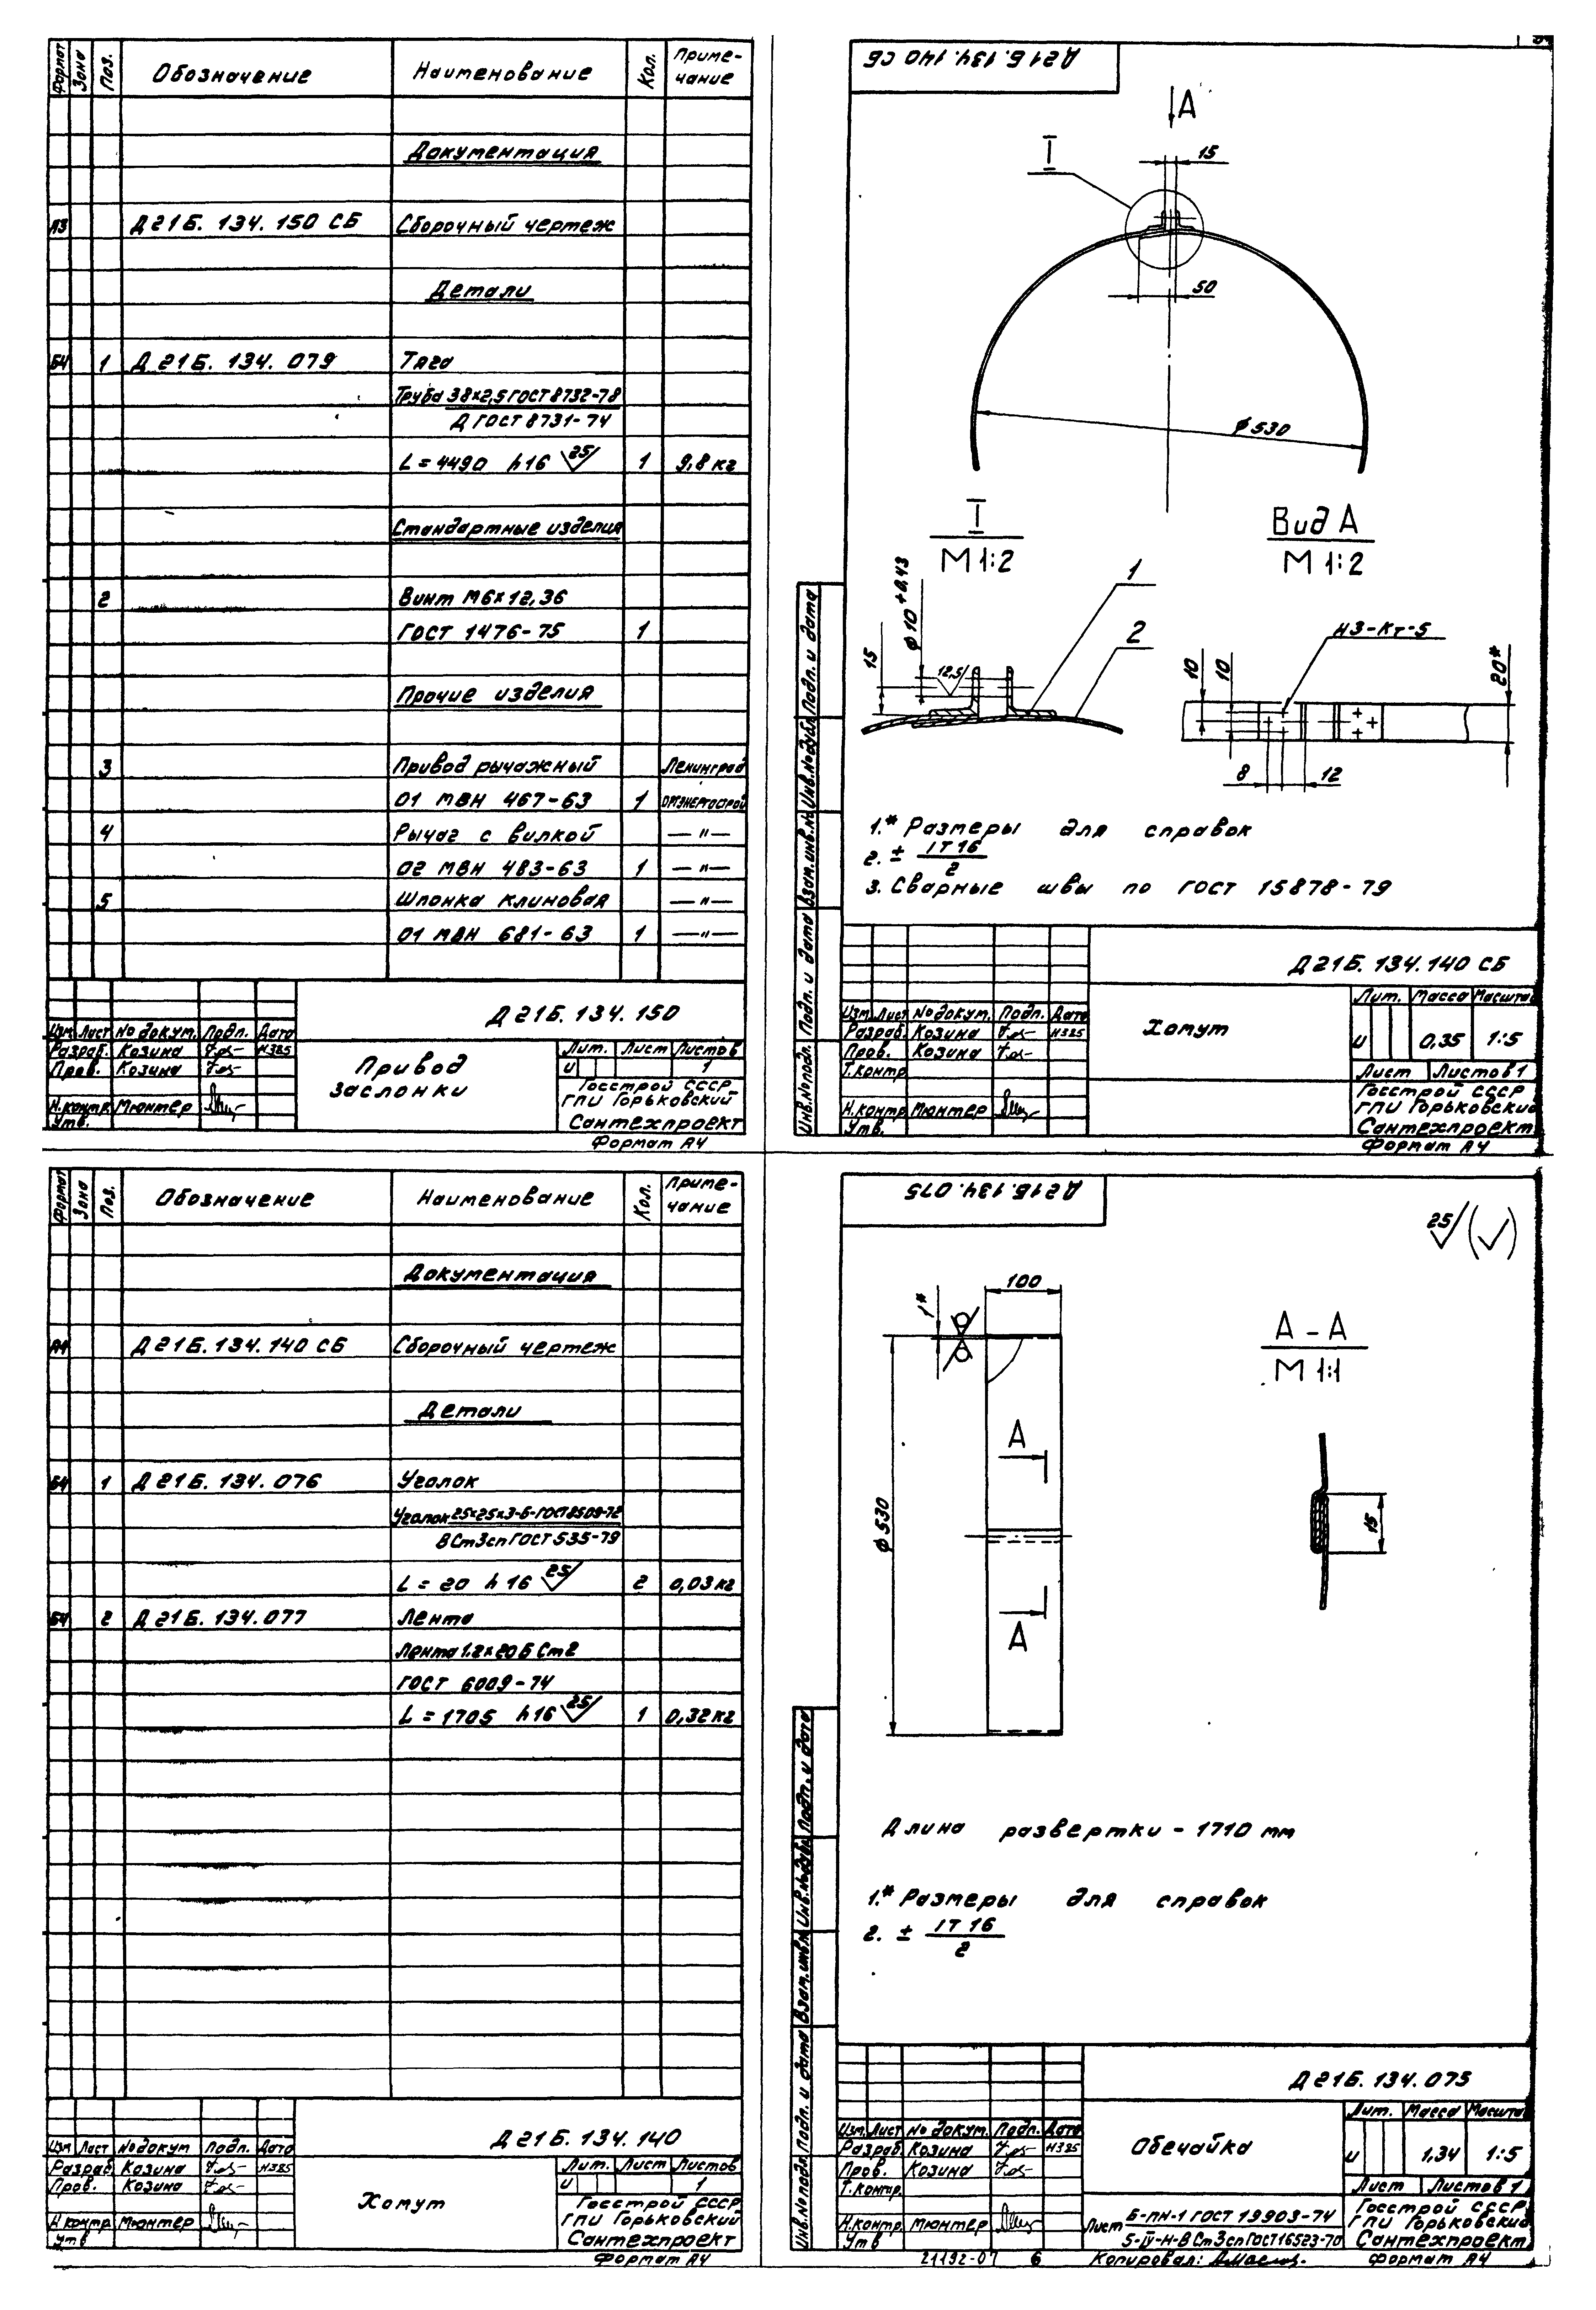 Формат Зона Поз. Обозначение Наименование Кол. Приме-
чание
Документация
А3 Д21Б. 134. 150 СБ Сборочный чертеж
Детали
Б4 1 Д21Б. 134. 079 Тяга
Труба 38×2,5 ГОСТ 8732-78
Д ГОСТ 8731-74
L = 4490 h16 25 1 9,8 кг
Стандартные изделия
2 Винт М6×12,36
ГОСТ 1476-75 1
Прочие изделия
3 Привод рычажный Ленинград
01 МВН 467-63 1 оргэнергострой
4 Рычаг с вилкой —"—
02 МВН 483-63 1 —"—
5 Шпонка клиновая —"—
01 МВН 681-63 1 —"—
Д21Б. 134. 150
Изм. Лист № докум. Подп. Дата
Разраб. Козина
Пров. Козина
Н.контр. Мюнтер
Утв.
Привод
заслонки
Лит. Лист Листов
И 1
Госстрой СССР
ГПИ Горьковский
Сантехпроект
Формат А4
Д21Б. 134. 140 СБ
А
I
15
50
φ530
I
М 1:2
Вид А
М 1:2
15
φ10 +0,43
12,5
1
2
10
10
Н3-Кт-5
20*
8
12
1.* Размеры для справок
2. ± IT 16
2
3. Сварные швы по ГОСТ 15878-79
Подп. и дата
Инв.№ дубл.
Взам.инв.№
Подп. и дата
Инв.№ подл.
Д21Б. 134. 140 СБ
Изм. Лист № докум. Подп. Дата
Разраб. Козина
Пров. Козина
Т.контр
Н.контр. Мюнтер
Утв.
Хомут
Лит. Масса Масштаб
И 0,35 1:5
Лист Листов 1
Госстрой СССР
ГПИ Горьковский
Сантехпроект
Формат А4
Формат Зона Поз. Обозначение Наименование Кол. Приме-
чание
Документация
А4 Д21Б. 134. 140 СБ Сборочный чертеж
Детали
Б4 1 Д21Б. 134. 076 Уголок
Уголок 25×25×3-Б-ГОСТ 8509-72
ВСт3сп ГОСТ 535-79
L = 20 h16 25 2 0,03 кг
Б4 2 Д21Б. 134. 077 Лента
Лента 1.2×20 Б Ст2
ГОСТ 6009-74
L = 1705 h16 25 1 0,32 кг
Д21Б. 134. 140
Изм Лист № докум Подп. Дата
Разраб Козина
Пров. Козина
Н.контр Мюнтер
Утв
Хомут
Лит. Лист Листов
И 1
Госстрой СССР
ГПИ Горьковский
Сантехпроект
Формат А4
Д21Б. 134. 075
25 (✓)
100
1*
φ530
А
А
А - А
М 1:1
15
Длина развертки - 1710 мм
1.* Размеры для справок
2. ± IT 16
2
Подп. и дата
Инв.№ дубл.
Взам.инв.№
Подп. и дата
Инв.№ подл.
Д21Б. 134. 075
Изм. Лист № докум Подп. Дата
Разраб. Козина
Пров. Козина
Т.контр.
Н.контр. Мюнтер
Утв
Обечайка
Лит. Масса Масштаб
И 1,34 1:5
Лист Листов 1
Лист Б-ПН-1 ГОСТ 19903-74
5-IV-Н-ВСт3сп ГОСТ 16523-70
Госстрой СССР
ГПИ Горьковский
Сантехпроект
21192-07 6 Копировал: Формат А4